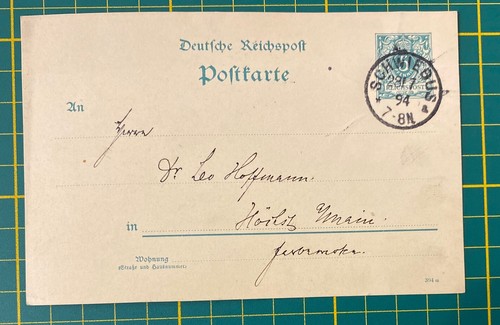 Deutsche Reichspost
Postkarte
SCHWIEBUS
94
7-8N.
REICHSPOST
An
Herrn
Dr Leo Hoffmann.
in Höchst Main.
Wohnung
(Straße und Hausnummer)